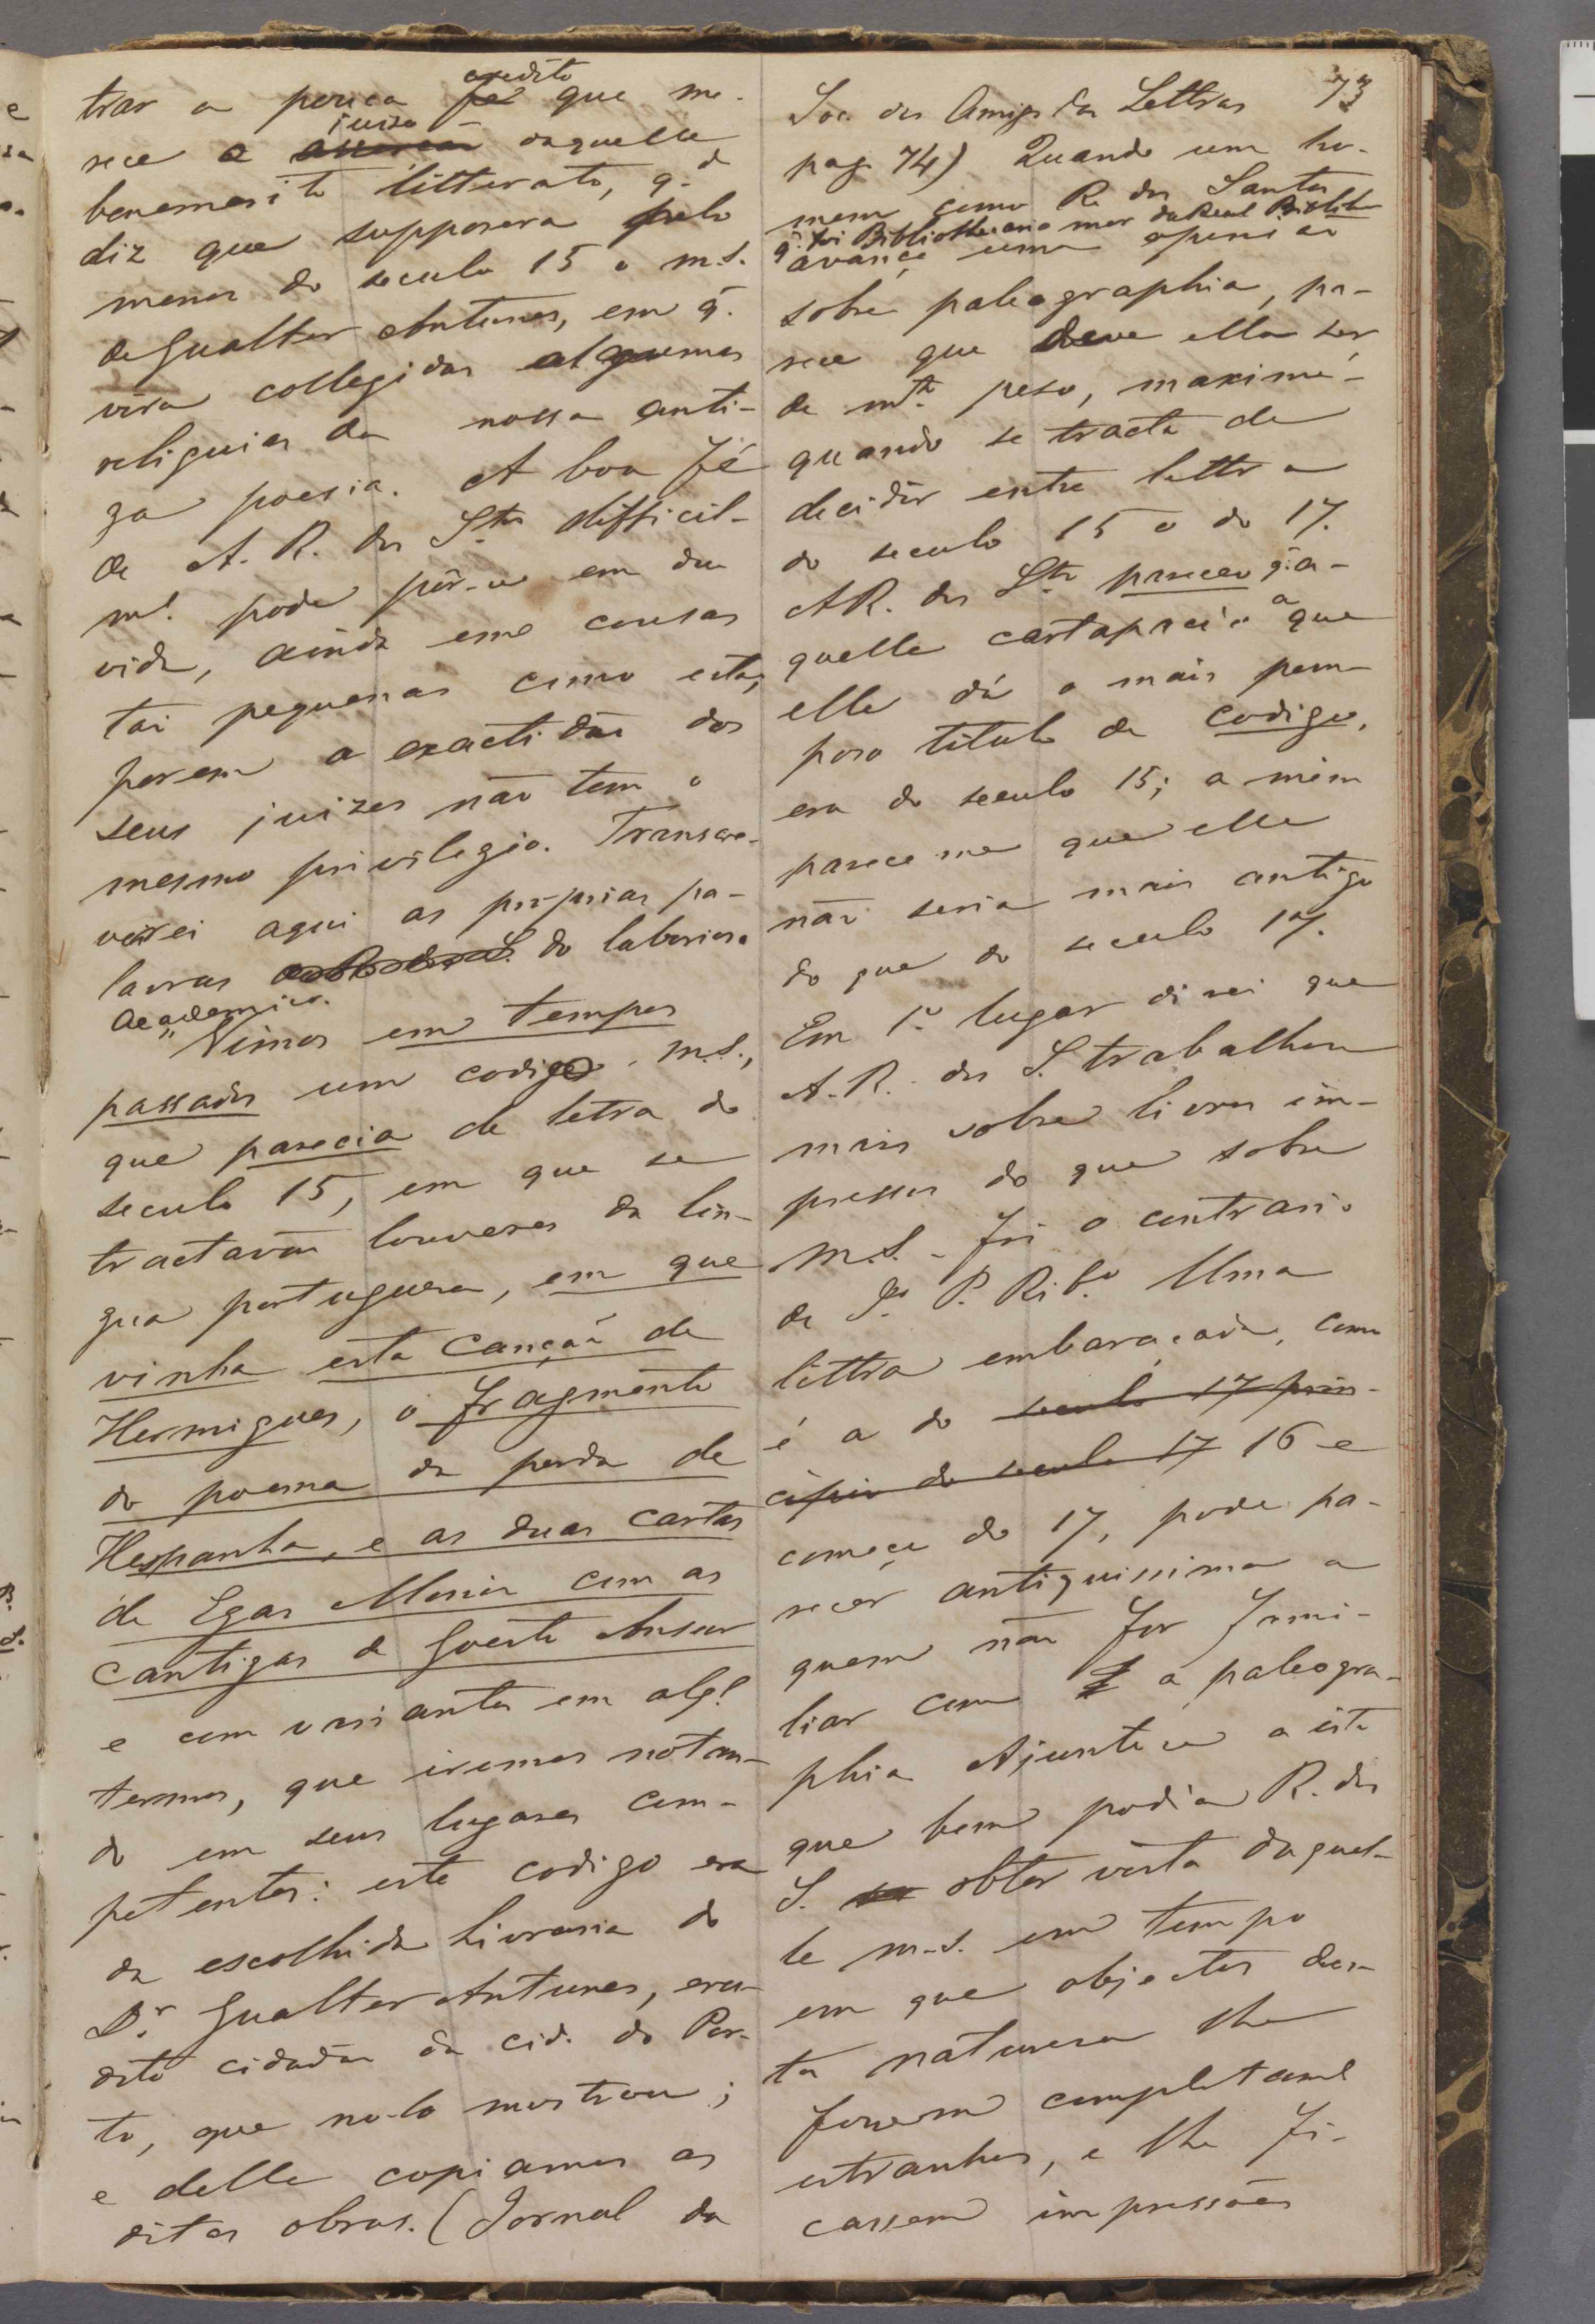 trar a pouca fé credito que me-
rece o asserção juizo daquelle
benemerito litterato, q.do
diz que supposera pelo
menos do seculo 15 o m.s.
de Gualter Antunes, em q.
vira collegidas algumas
reliquias da nossa anti-
ga poesia. A boa fé
de A. R. dos S.tos difficil-
m.te pode pôr-se em du
vida, ainda em cousas
tão pequenas como esta;
porem a exactidão dos
seus juizos não tem o
mesmo privilegio. Transcre-
verei aqui as proprias pa-
lavras do laborioso
Academico.
"Vimos em tempos
passados um codigo m.s.,
que parecia de letra do
seculo 15, em que se
tractavão louvores da lin-
gua portuguesa, em que
vinha esta Canção de
Hermigues, o fragmento
do poema da perda de
Hespanha, e as duas cartas
de Egas Moniz com as
cantigas de Goesto Ansur
e com variantes em alg.s
termos, que iremos notan-
do em seus lugares com-
petentes: este codigo era
da escolhida Livraria do
D.r Gualter Antunes, eru-
dito cidadão da cid. do Por-
to, que no-lo mostrou;
e delle copiamos as
ditas obras. (Jornal da
73
Soc. dos Amig. das Lettras
pag. 74) Quando um ho-
mem como R. dos Santos
q. foi Bibliothecario mor da Real Biblioth
avança uma opinião
sobre paleographia, pa-
rece que deve ella ser
de m.to peso, maxime
quando se tracta de
decidir entre lettra
do seculo 15 e do 17.
A R. dos S.tos pareceu q. a-
quelle cartapacio a que
elle dá o mais pom-
poso titulo de codigo,
era do seculo 15; a mim
parece-me que elle
não seria mais antigo
do que do seculo 17.
Em 1.o lugar direi que
A. R. dos S. trabalhou
mais sobre livros im-
pressos do que sobre
m.s. - foi o contrario
de J. P. Rib.o Uma
lettra embaraçada, como
é a do seculo 17 prin-
cipio do seculo 17 16 e
começo do 17, pode pa-
recer antiquissima a
quem não for fami-
liar com a paleogra-
phia Ajunte-se a isto
que bem podia R. dos
S. obter vista daquel-
le m.s. em tempo
em que objectos des-
ta natureza lhe
fossem completam.e
estranhos, e lhe fi-
cassem impressões